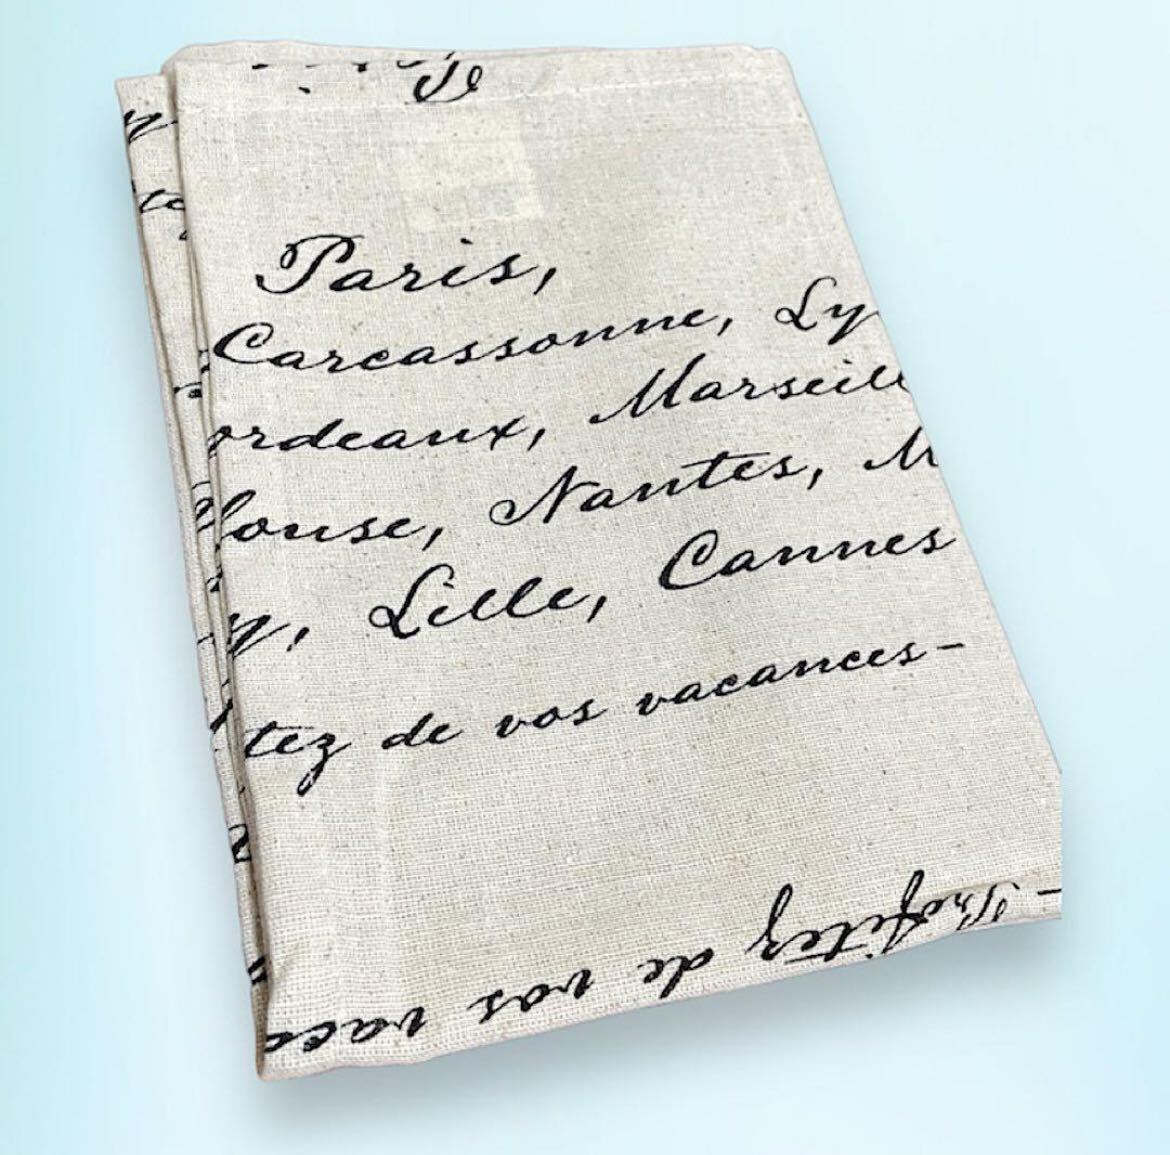 Paris,
Carcassonne, Ly
ordeaux, Marseill
louse, Nantes, M
y, Lille, Cannes
tez de vos vacances-
-Profitez de vos vaca